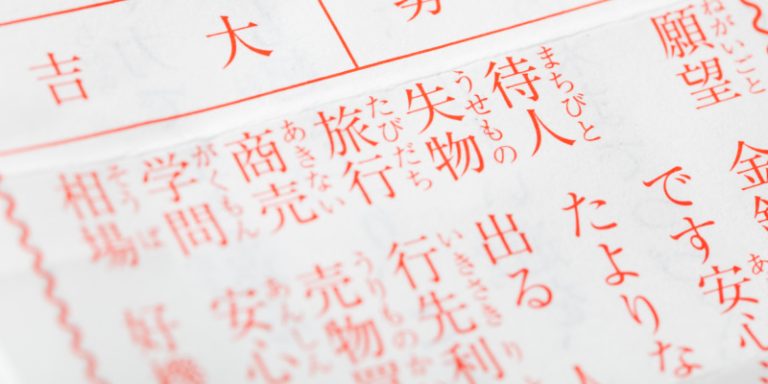 大吉
願望 金
ねがいごと
です安心
待人 たよりな
まちびと
失物 出る
うせもの
旅行 行先利
たびだち いきさき り
商売 売物買
あきない うりもの か
学問 安心
がくもん あんしん
相場 好機
そうば